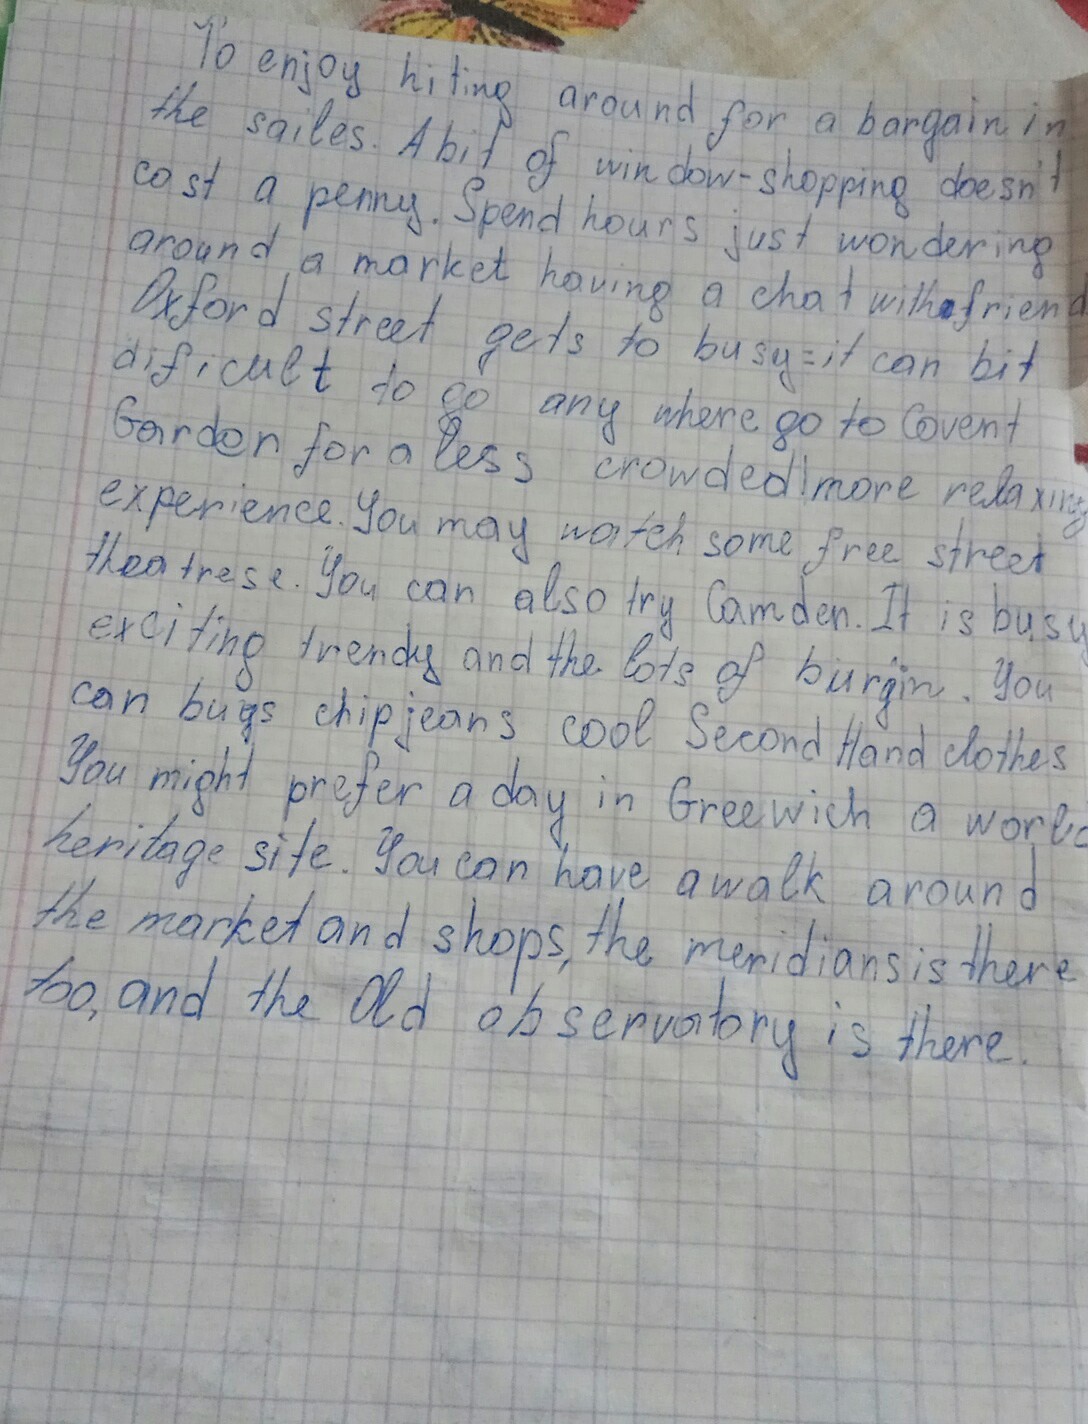 To enjoy hiting around for a bargain in
the sailes. A bit of window-shopping doesn't
cost a penny. Spend hours just wondering
around a market having a chat with a friend
Oxford street gets to busy=it can bit
dificult to go any where go to Covent
Garden for a less crowded! more relaxing
experience. You may watch some free street
theatrese. You can also try Camden. It is busy
exciting trendy and the lots of burgin. You
can buys chip jeans cool Second Hand clothes
You might prefer a day in Greewich a world
heritage site. You can have a walk around
the market and shops, the meridians is there
too, and the Old observatory is there.